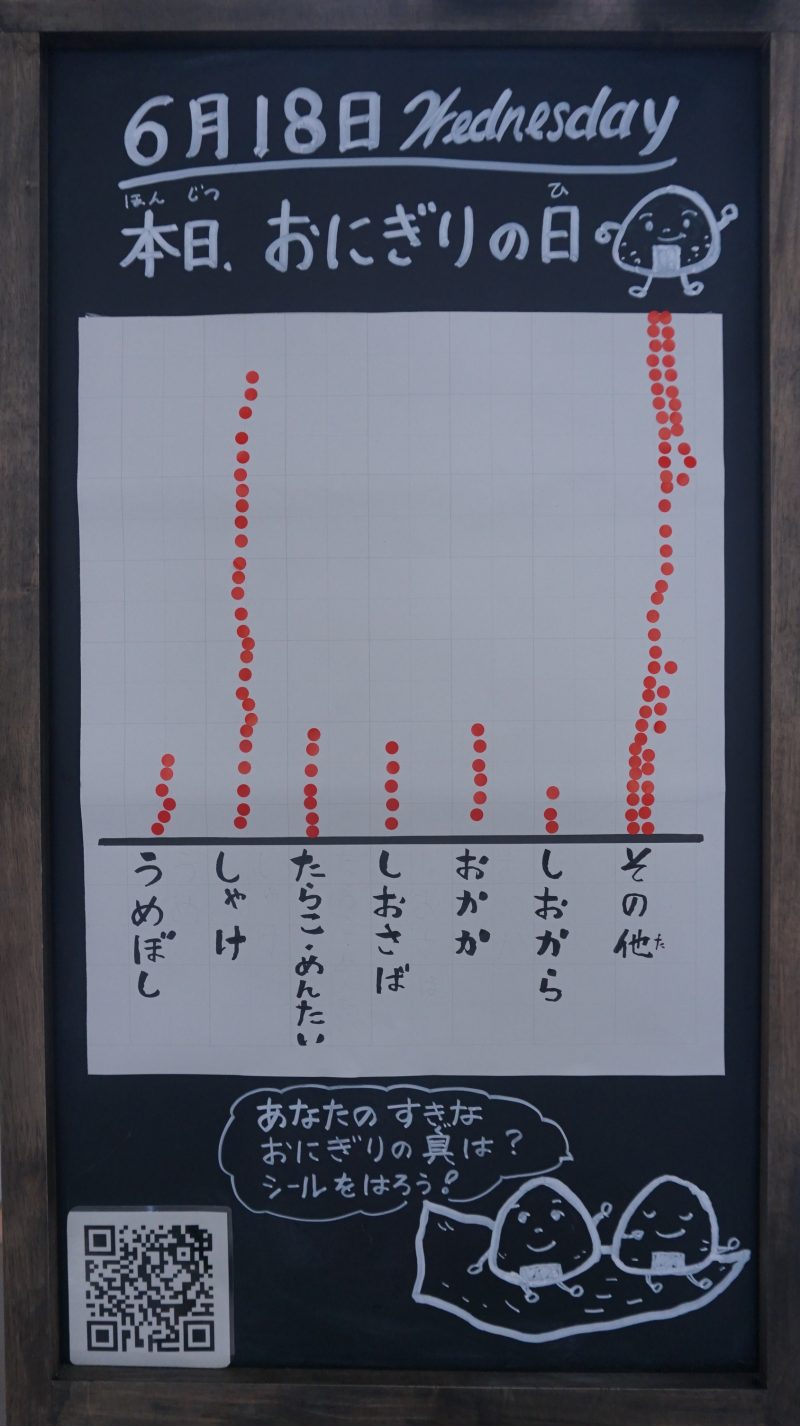 6月18日 Wednesday
ほんじつ ひ
本日、おにぎりの日
うめぼし
しゃけ
たらこ・めんたい
しおさば
おかか
しおから
その他
た
あなたのすきな
おにぎりの具は?
ぐ
シールをはろう!